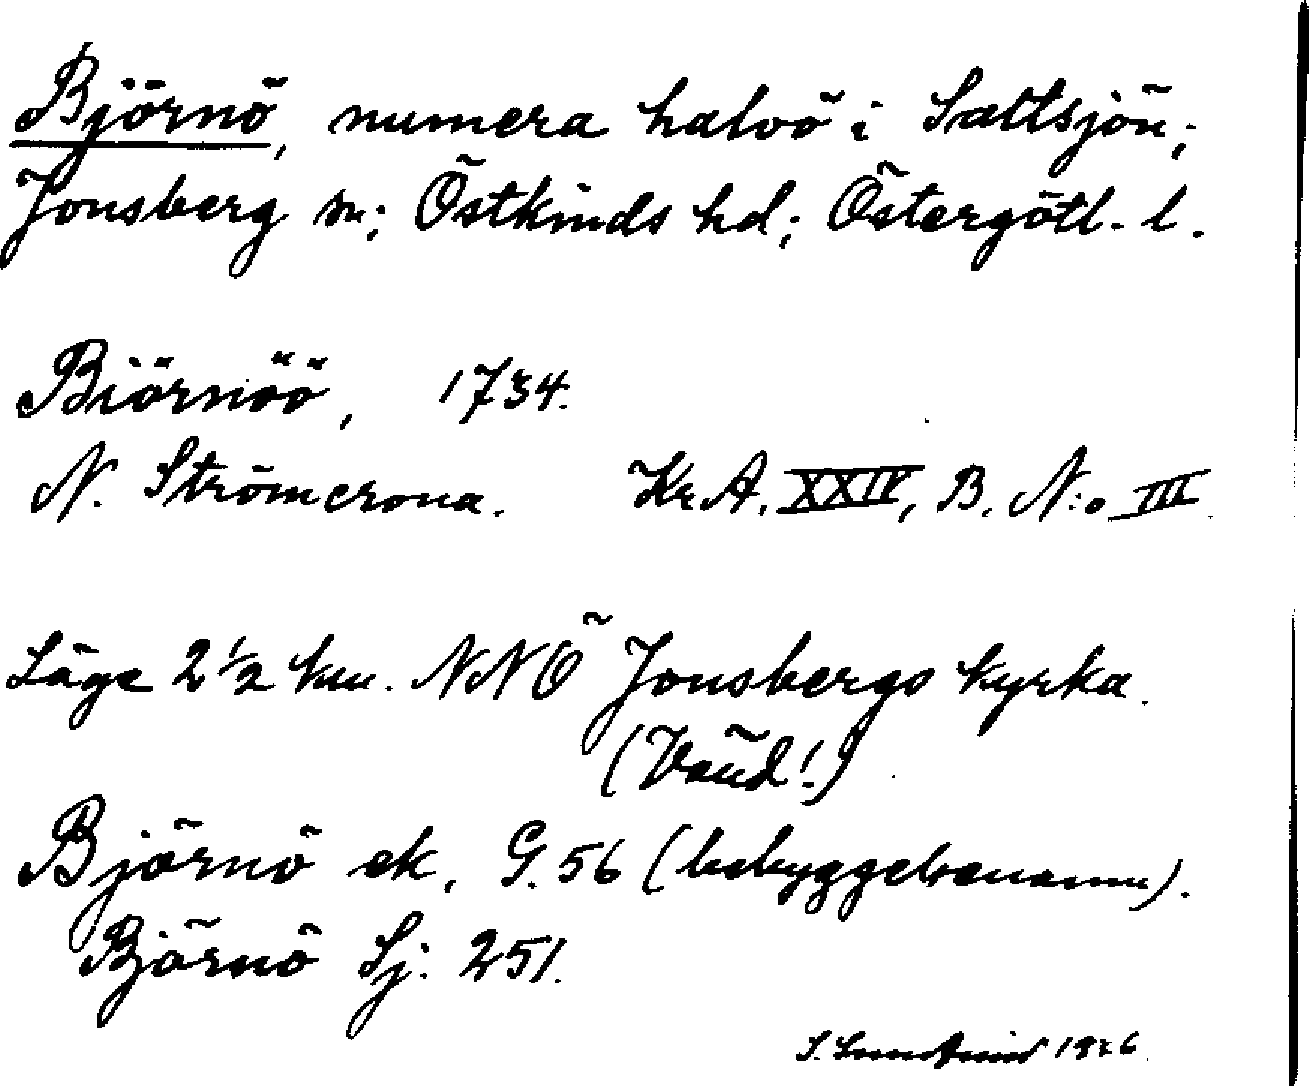 Björnö, numera halvö i Saltsjön;
Jonsberg sn; Östkinds hd; Östergötl. l.
Biörnöö, 1734.
N. Strömcrona. Kr. A. XXIV, B. N:o III
Läge 2 1/2 km. NNÖ Jonsbergs kyrka.
(Vänd!)
Björnö ek. G. 56 (bebyggelsenamn).
Björnö Sj. 251.
1926